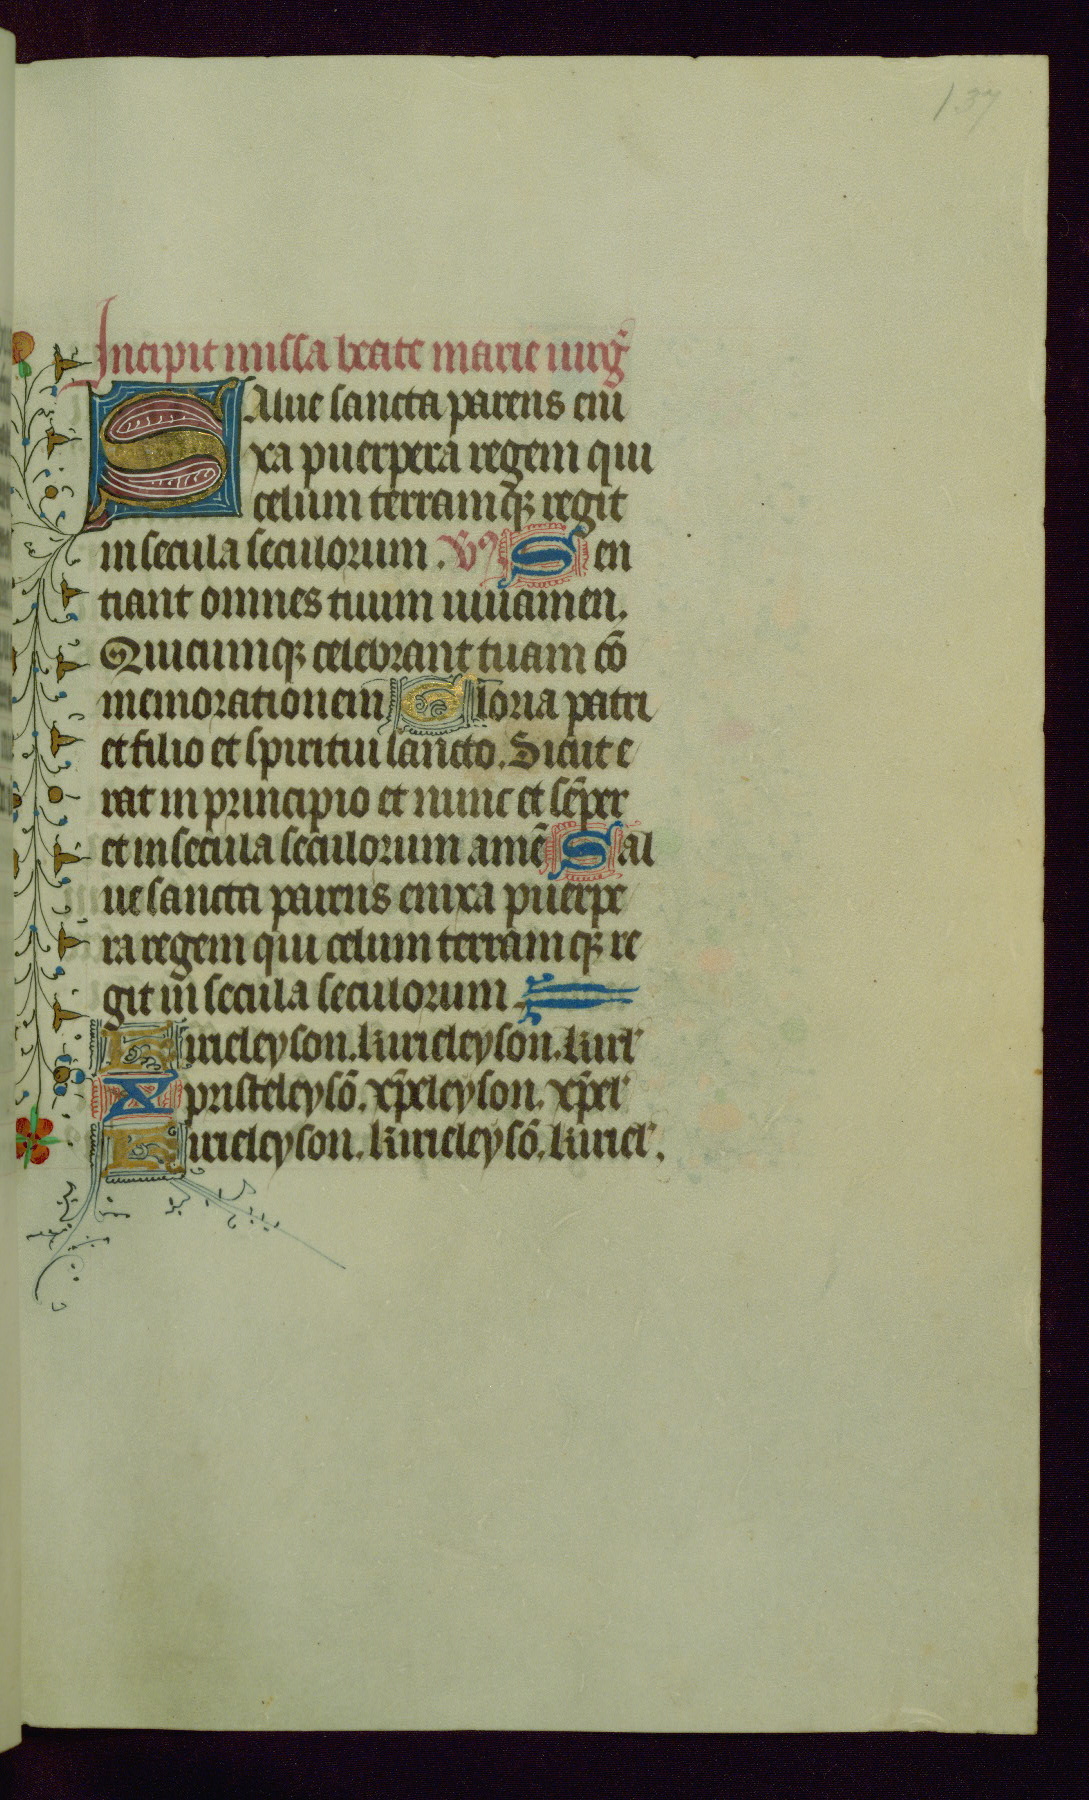 137
Incipit missa beate marie uirg̃
Salue sancta parens eni
xa puerpera regem qui
celum terramq; regit
in secula seculorum. V9 Sen
tiant omnes tuum iuuamen.
Quicumq; celebrant tuam cō
memorationem Gloria patri
et filio et spiritui sancto. Sicut e
rat in principio et nunc et sēper
et in secula seculorum amē Sal
ue sancta parens enixa puerpe
ra regem qui celum terramq; re
git in secula seculorum
Kirieleyson. kirieleyson. kirl'
Xpristeleysō. xp̄eleyson. xp̄el'
Kirieleyson. kirieleysō. kiriel'.